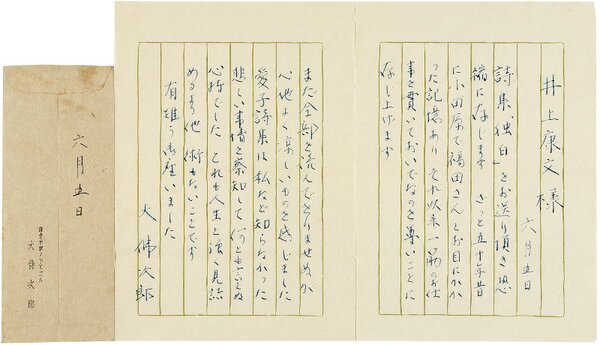 井上康文様
六月五日
詩集「独白」をお送り頂き恐
縮に存じます ざっと五十年昔
に小田原で福田さんとお目にかか
った記憶あり それ以来一筋のお仕
事を貫いておいでなのを尊いことに
存し上げます
まだ全部を読んでをりませぬが
心地よく涼しいものを感じました
愛子詩集は私など知らなかった
悲しい事情を察知して何とも云へぬ
心持でした これも人生と強く見詰
めるより他 術もないことです
有難う御座いました
大佛次郎
六月五日
大佛次郎